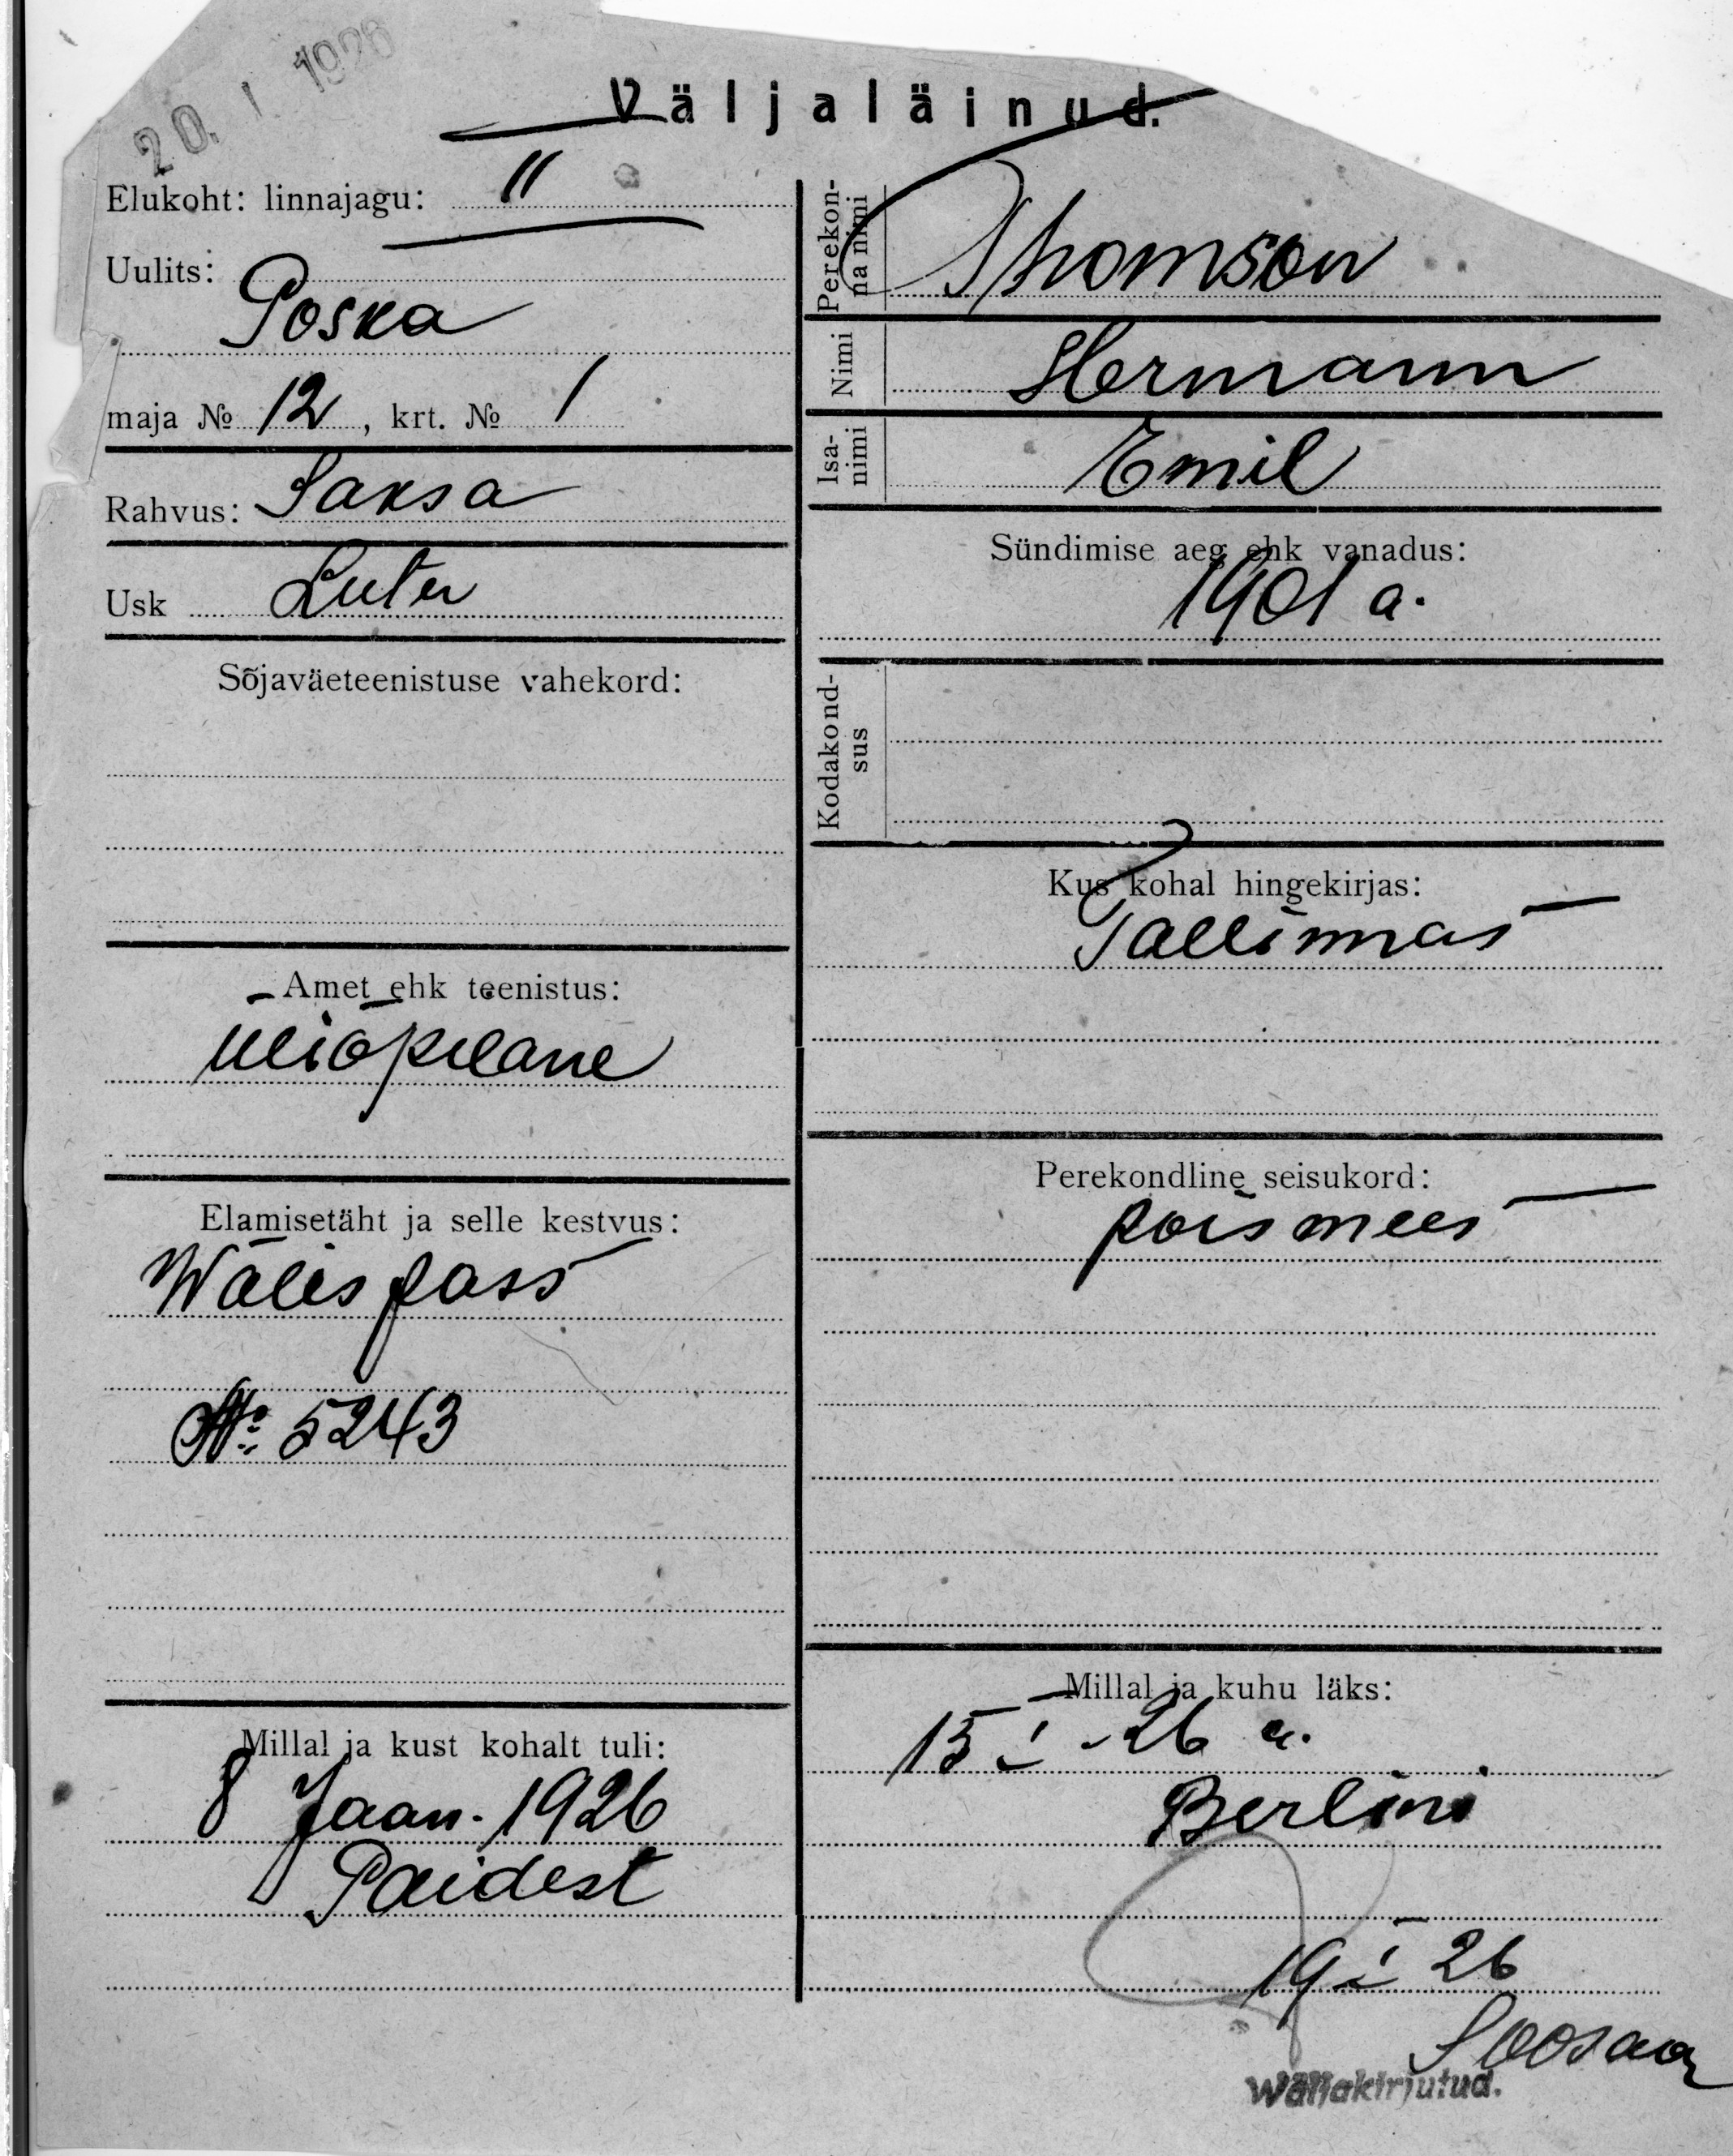 20. I 1926
Väljaläinud.
Elukoht: linnajagu: II
Uulits:
Poska
maja № 12, krt. № 1
Rahvus: Saksa
Usk Luter
Sõjaväeteenistuse vahekord:
Amet ehk teenistus:
üliõpilane
Elamisetäht ja selle kestvus:
Wälispass
№ 5243
Millal ja kust kohalt tuli:
8 Jaan. 1926
Paidest
Perekon-
na nimi
Thomson
Nimi
Hermann
Isa-
nimi
Emil
Sündimise aeg ehk vanadus:
1901 a.
Kodakond-
sus
Kus kohal hingekirjas:
Tallinnas
Perekondline seisukord:
poismees
Millal ja kuhu läks:
15 I - 26 a.
Berlini
19 I 26
Soosaar
Wäljakirjutud.